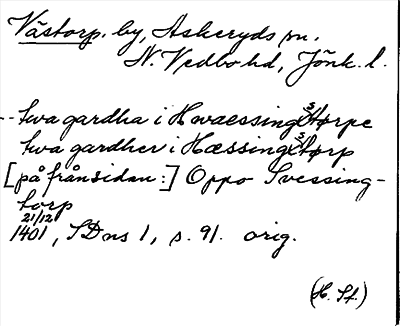 Västorp. by, Askeryds sn.
N. Vedbo hd, Jönk. l.
-- tva gardha i Hvaessingxstørpe
tva gardher i Hæssingxstørp
[på frånsidan:] Oppo Svessing-
torp
21/12
1401, SDns 1, s. 91. orig.
(H. St.)